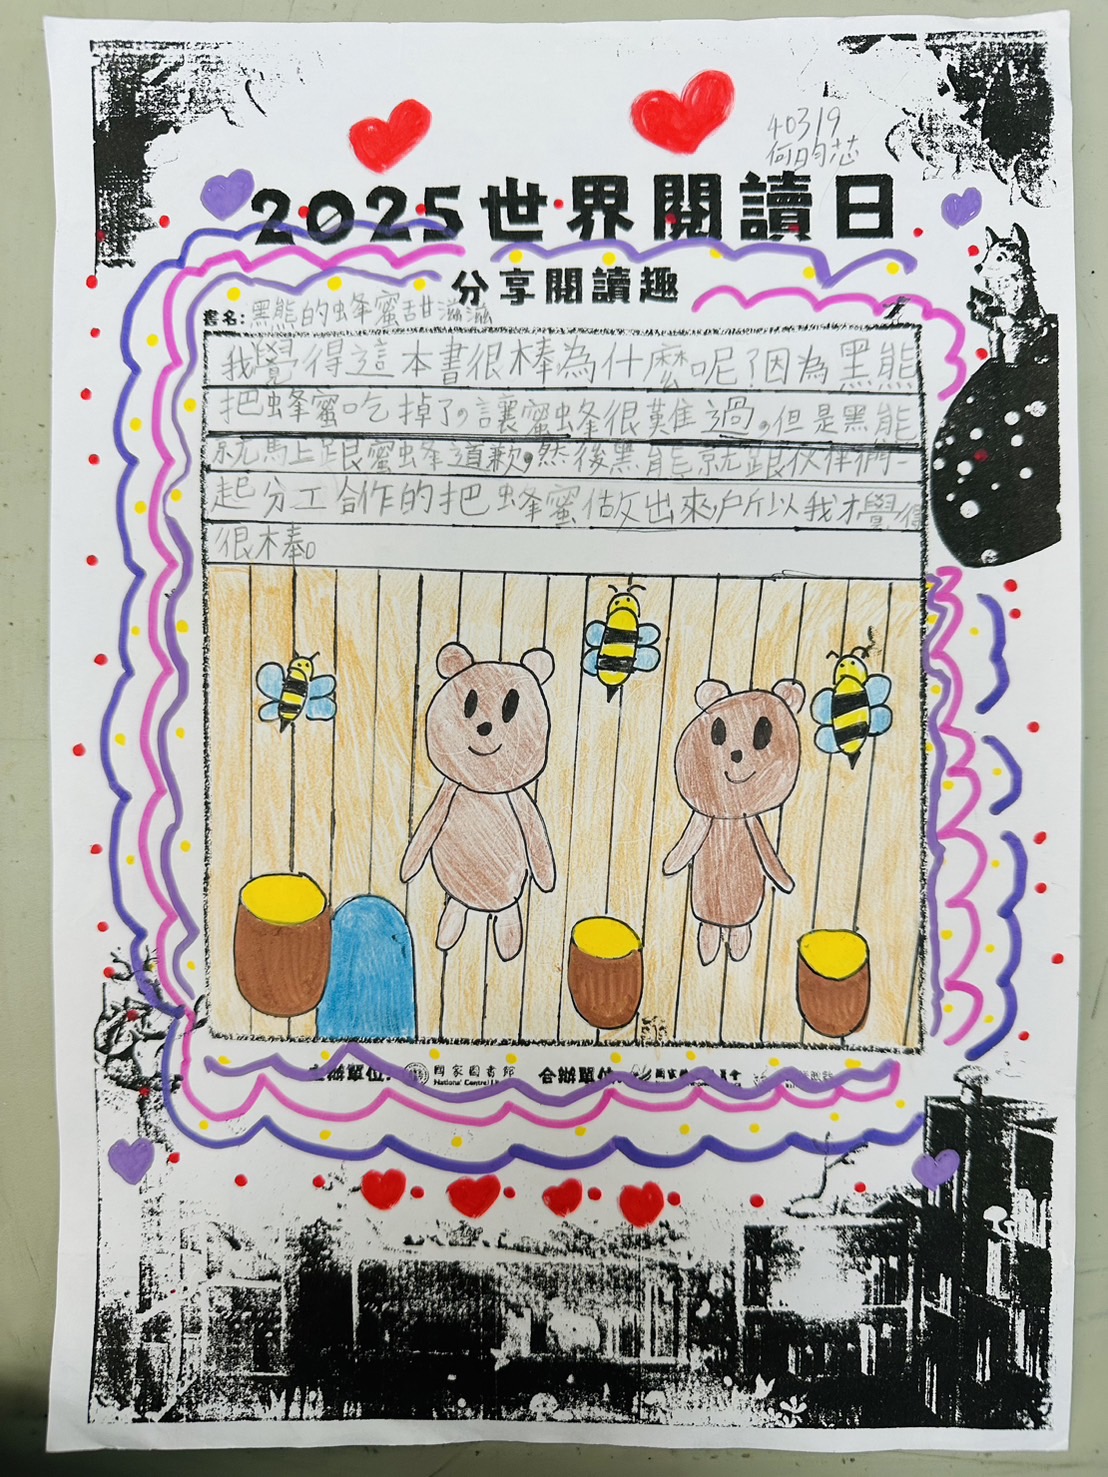 40319
何昀芯
2025世界閱讀日
分享閱讀趣
書名:黑熊的蜂蜜甜滋滋
我覺得這本書很棒為什麼呢?因為黑熊
把蜂蜜吃掉了,讓蜜蜂很難過,但是黑熊
就馬上跟蜜蜂道歉,然後黑熊就跟伙伴們一
起分工合作的把蜂蜜做出來,所以我才覺得
很棒。
主辦單位: 國家圖書館 合辦單位:
National Central